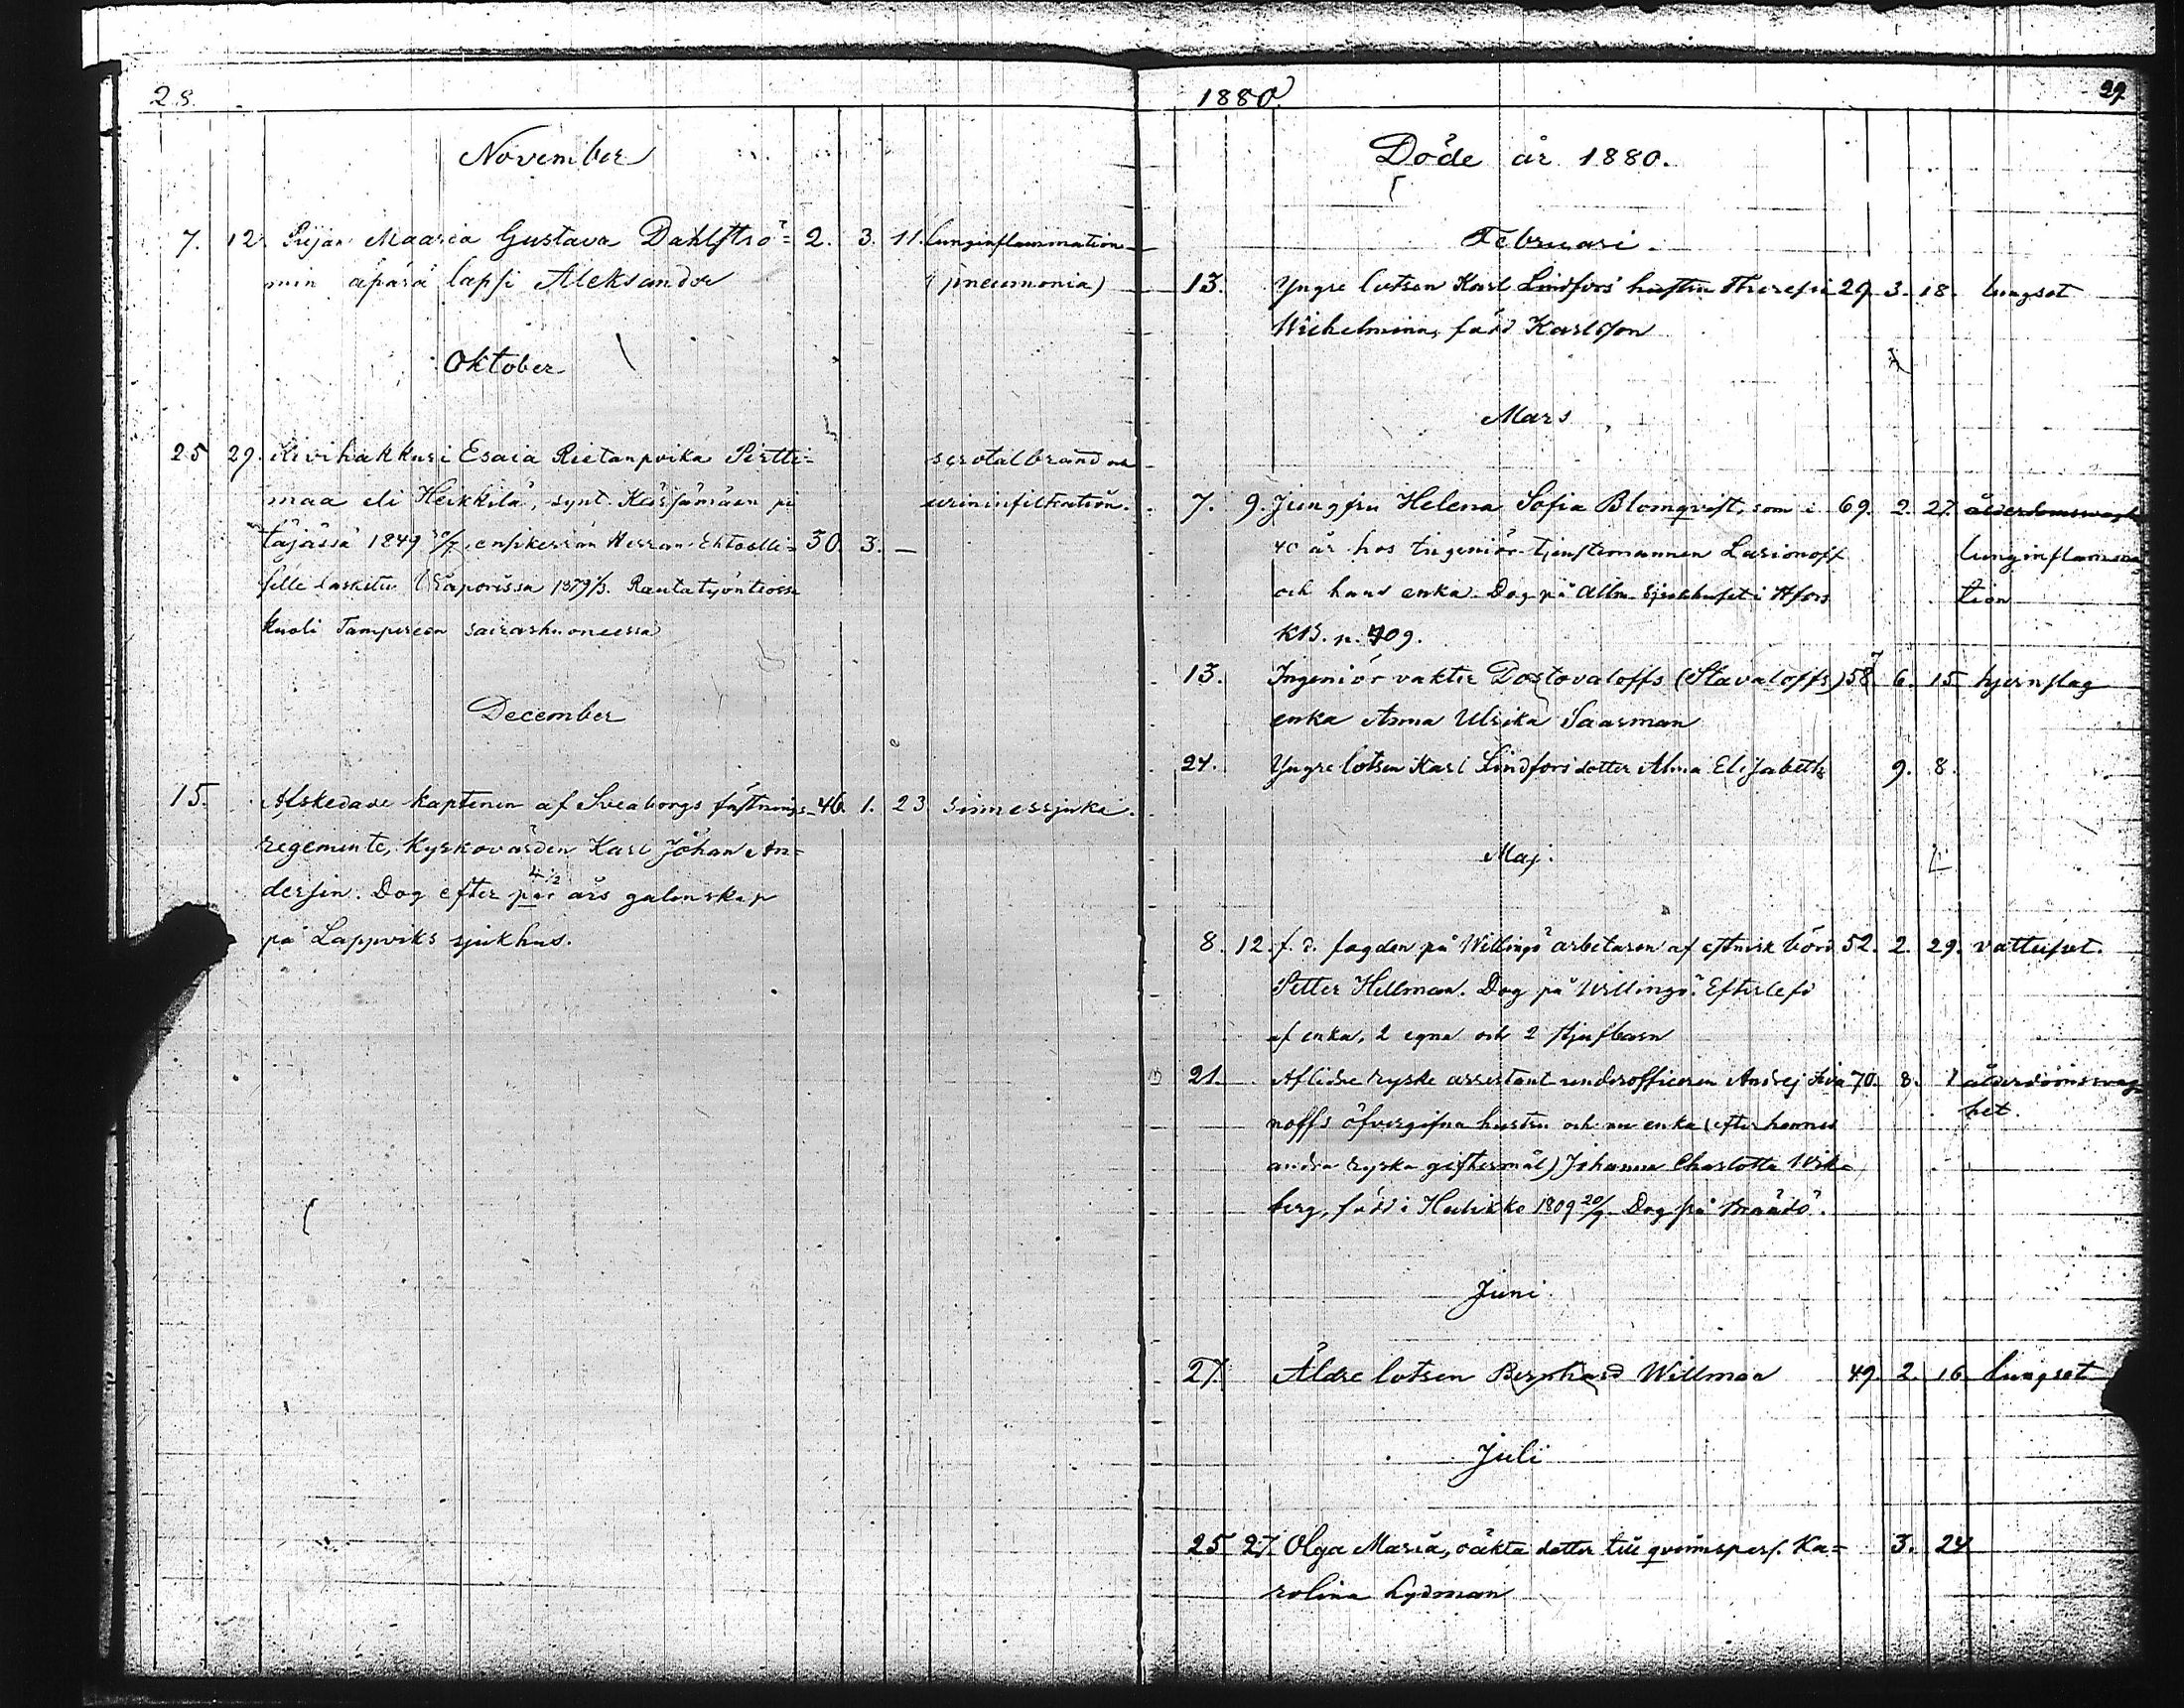 28.
November
7. 12. Piijan Maaria Gustava Dahlströ= 2. 3. 11. lunginflammation
min äpärä lapsi Aleksander (pneumonia)
Oktober
25 29. Kivihakkuri Esaia Rietanpoika Pirtti=
maa eli Heikkilä, synt.
1849 30. 3. —
serotalbrand
urininfiltration.
sille laskettu Viaporissa 1879
kuoli Tampereen sairashuoneessa
December
15. Afskedade kaptenen af Sveaborgs fästnings- 46. 1. 23 sinnessjuka.
regemente, kyrkovärden Karl Johan An=
dersin. Dog efter par 4 1/2 års galenskap
på Lappviks sjukhus.
1880. 29
Döde år 1880.
Februari.
13. Yngre lotsen Karl Lindfors' hustru Theresia 29. 3. 18. lungsot
Wilhelmina, född Karlsson
Mars
7. 9. Jungfru Helena Sofia Blomqvist, som i 69. 2. 27. ålderdomssvagh
40 år hos Ingeniör-tjenstemannen Larionoff lunginflamma
och hans enka. Dog på Allm. Sjukhuset i Hfors tion
KB. p. 409.
13. Ingeniör vakter Dostovaloffs (Stavaloffs) 58 6. 15 hjernslag
enka Anna Ulrika Saarman
24. Yngre lotsen Karl Lindfors' dotter Alma Elisabeth 9. 8.
Maj.
8. 12. f. d. fogden på Willingö arbetaren af estnisk börd 52. 2. 29. vattusot.
Petter Hellman. Dog på Willingö. Efterlefd
af enka, 2 egna och 2 stjufbarn
21. Aflidne ryske assistent underofficeren Andrej Iva 70. 8. 1 ålderdomssvag=
noffs öfvergifna hustru och nu enka (efter hennes het.
andra ryska giftermål) Johanna Charlotta Wik=
berg, född i Halikko 1809 20/9. Dog på
Juni
27. Äldre lotsen Bernhard Willman 49. 2. 16. lungsot
Juli
25 27. Olga Maria, oäkta dotter till qvinspers. Ka= 3. 24
rolina Lydman